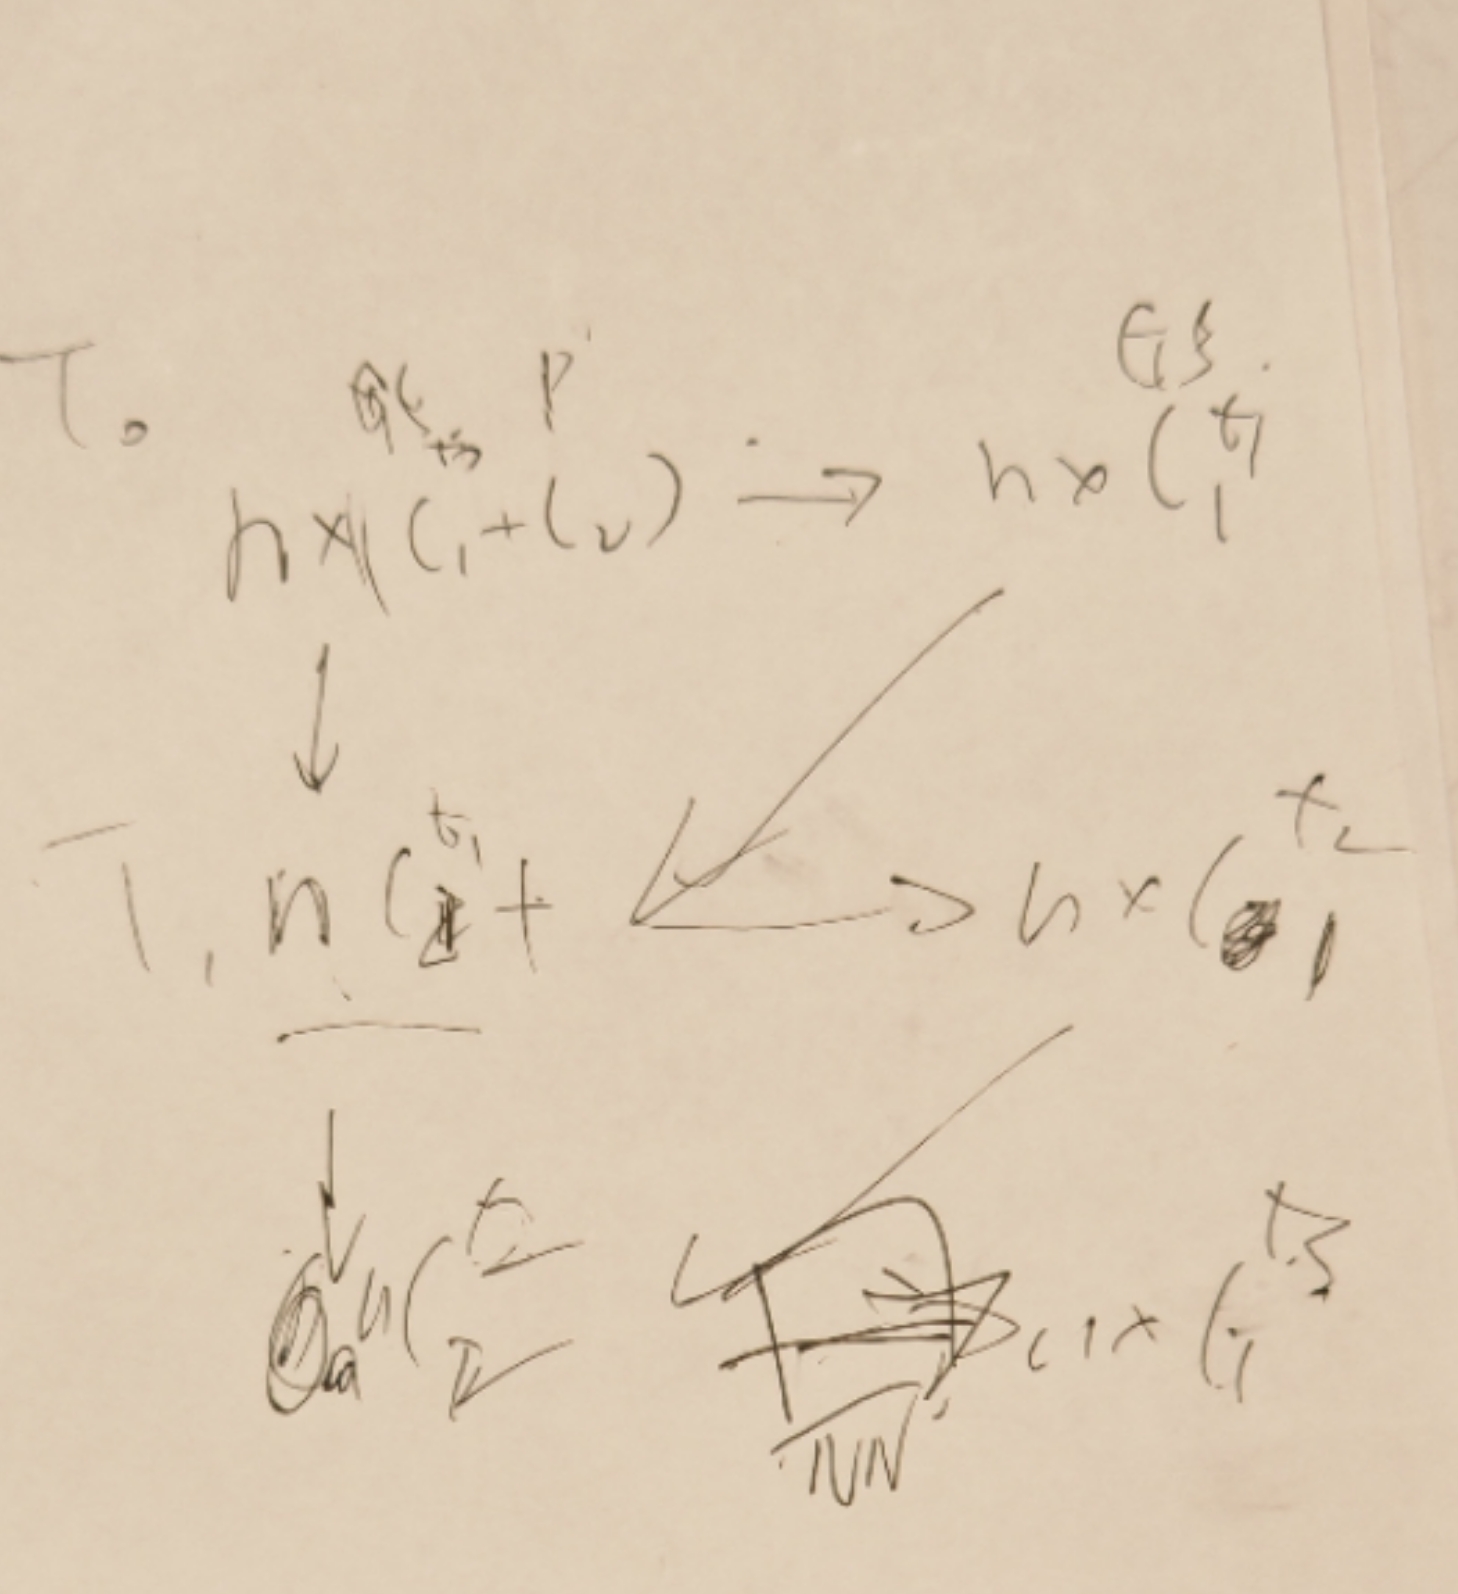 T₀
P
GS
n × (C₁ + C₂) → n × C₁^t₁
↓
T₁ n C₂^t₁ + → n × C₁^t₂
↓
n C₂^t₂ → n × C₁^t₃
NN